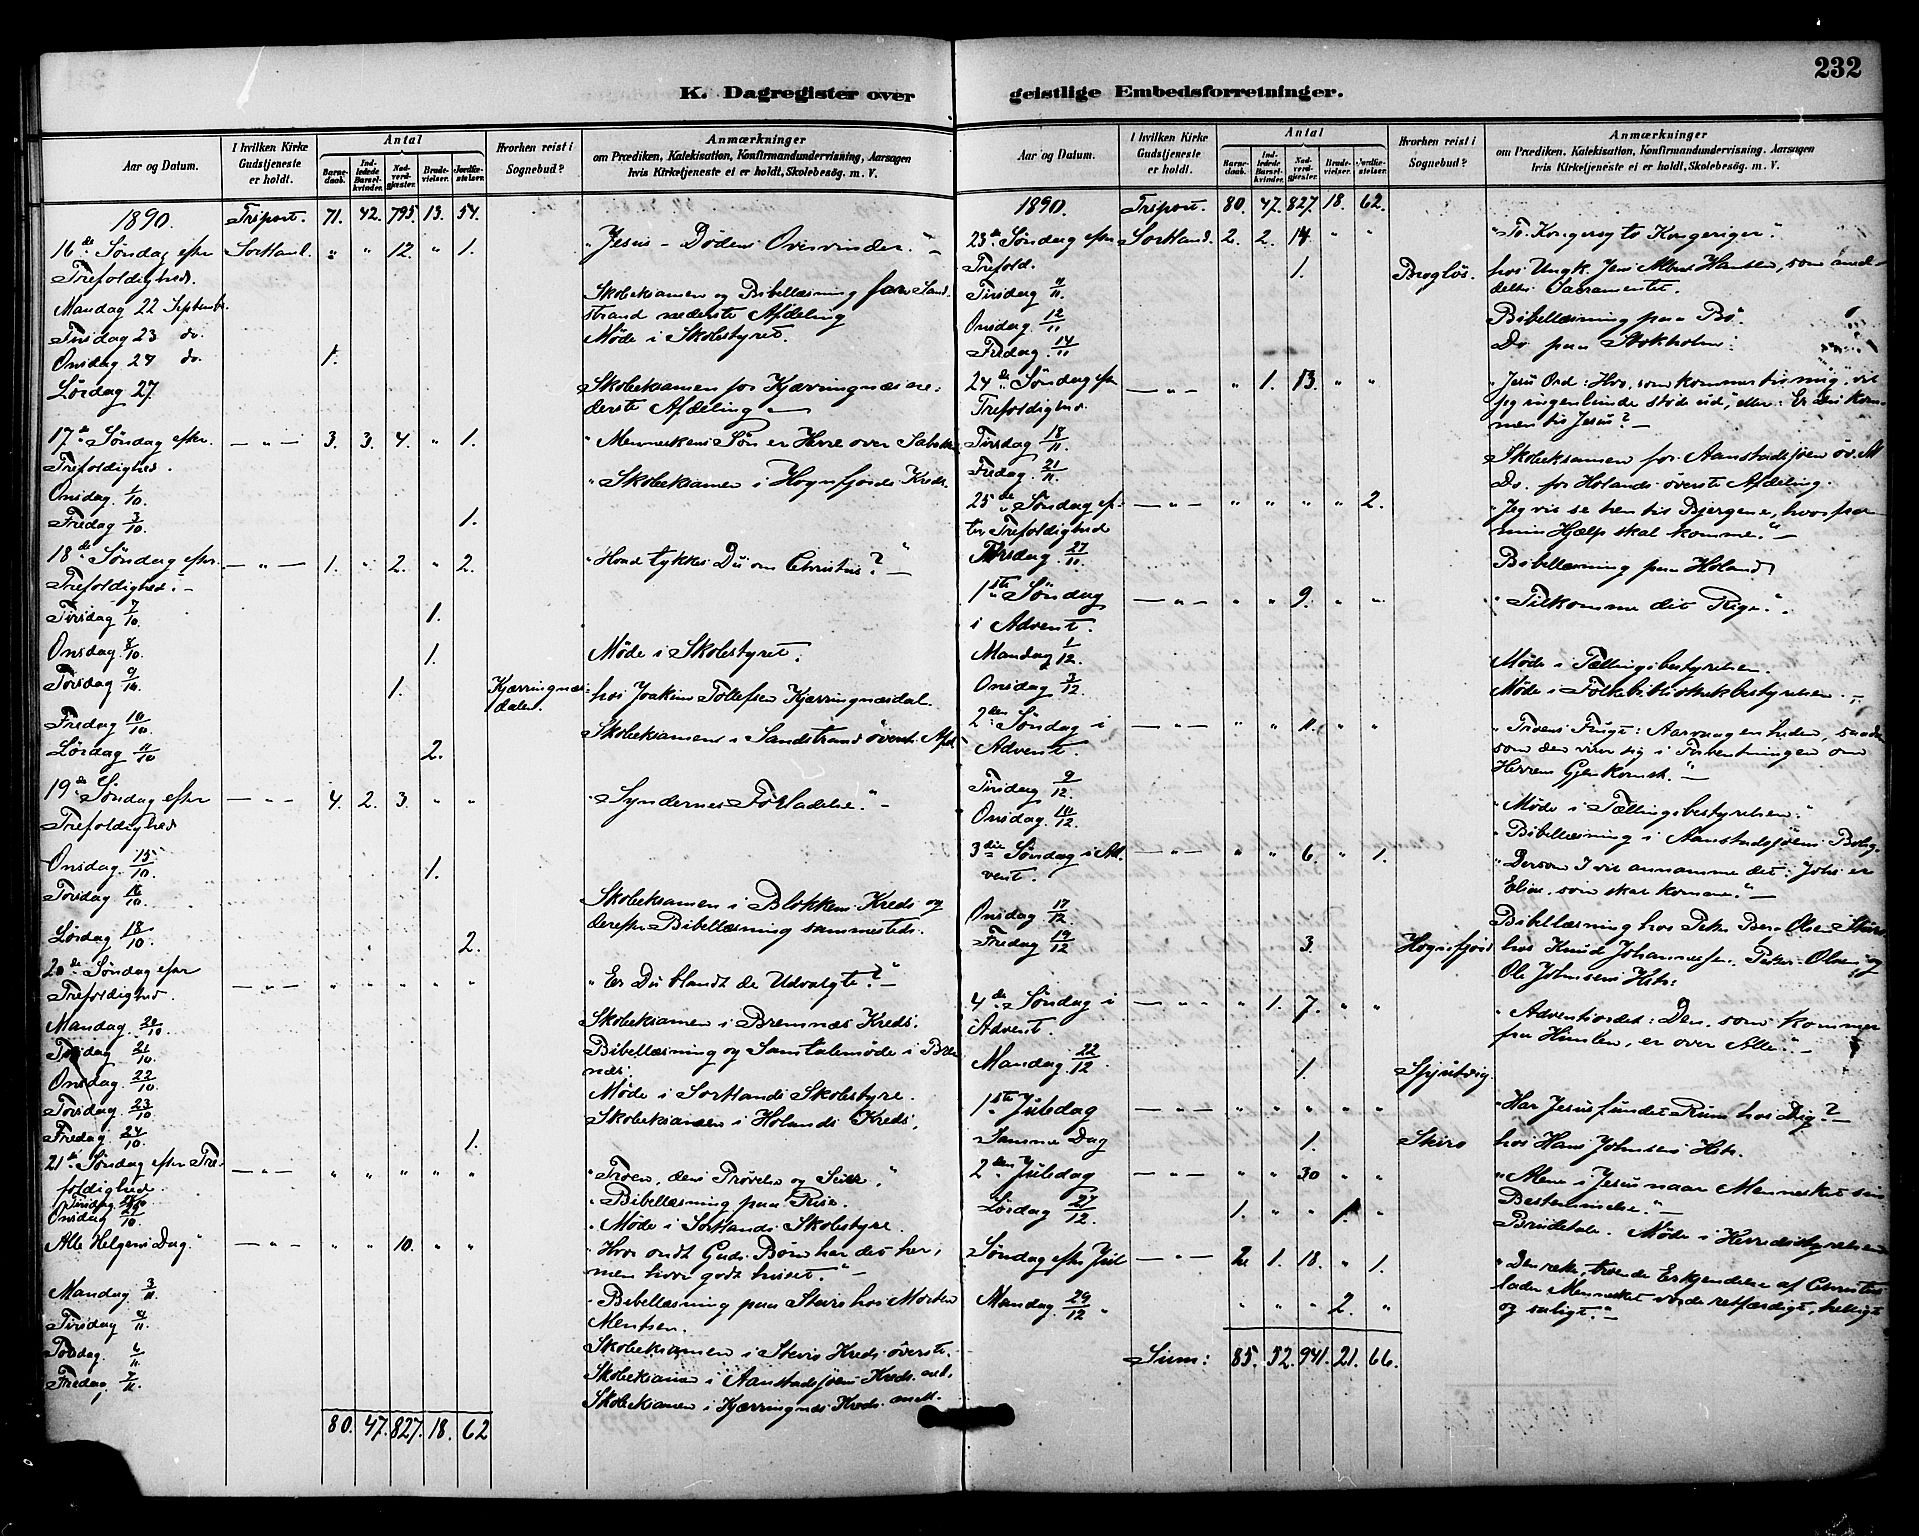 232
K. Dagregister over geistlige Embedsforretninger.
Aar og Datum. I hvilken Kirke Gudstjeneste er holdt. Antal Barnedaab. Indledede Barselkvinder. Nadverdgjester. Brudevielser. Jordfæstelser. Hvorhen reist i Sognebud? Anmærkninger
om Prædiken, Katekisation, Konfirmandundervisning, Aarsagen
hvis Kirketjeneste ei er holdt, Skolebesøg. m. V.
1890. Tripost. 71. 42. 795. 13. 54.
16de Søndag efter Sortland. " " 12. " 1. "Jesus – Dødens Overvinder."
Trefoldighed.
Mandag 22 Septembr. Skoleksamen og Bibellæsning for Sand-
strand nederste Afdeling
Tirsdag 23 do. Møde i Skolestyret.
Onsdag 24 do. 1.
Lørdag 27. Skoleksamen for Kjærringnæs ne-
derste Afdeling
17de Søndag efter — " — 3. 3. 4. " 1. "Menneskens Søn er Herre over Sabbaten
Trefoldighed.
Onsdag 1/10 "Skoleksamen i Hognfjords Kreds.
Fredag 3/10 1.
18de Søndag efter — " — 1. " 2. " 2. "Hvad tykkes Du om Christus?" —
Trefoldighed. —
Tirsdag 7/10. 1.
Onsdag 8/10. 1. Møde i Skolestyret.
Torsdag 9/10. 1. Kjærringnæs-dalen. hos Joakim Tollefsen Kjærringnæsdal.
Fredag 10/10. Skoleksamen i Sandstrand øverste Afd.
Lørdag 11/10. 2.
19de Søndag efter — " — 4. 2. 3. " " "Syndernes Forladelse." —
Trefoldighed
Onsdag 15/10. 1.
Torsdag 16/10. Skoleksamen i Blokken Kreds og
derefter Bibellæsning sammesteds.
Lørdag 18/10. 2.
20de Søndag efter — " — " " " " " "Er Du blandt de Udvalgte?" —
Trefoldighed.
Mandag 20/10. Skoleksamen i Bremnæs Kreds.
Tirsdag 21/10 Bibellæsning og Samtalemøde i Brem-
næs.
Onsdag 22/10 Møde i Sortlands Skolestyre.
Torsdag 23/10 Skoleksamen i Holands Kreds.
Fredag 24/10 1.
21de Søndag efter Tre- — " — " " " " " "Troen, dens Prøvelse og Seier."
foldighed
Tirsdag 28/10 "Bibellæsning paa Rise.
Onsdag 29/10. "Møde i Sortlands Skolestyre.
Alle Helgens Dag. — " — " " 10. " " "Hvor ondt Guds Børn har det her,
men hvor godt hisset." —
Mandag 3/11 "Bibellæsning paa Steiro hos Morten
Mentsen.
Tirsdag 4/11.
Torsdag 6/11. Skoleksamen i Steiro Kreds øverste.
Fredag 7/11. Skoleksamen i Aanstadsjøens Kreds ned.
Skoleksamen i Kjærringnæs Kreds ned.
80. 47. 827. 18. 62
Aar og Datum. I hvilken Kirke Gudstjeneste er holdt. Antal Barnedaab. Indledede Barselkvinder. Nadverdgjester. Brudevielser. Jordfæstelser. Hvorhen reist i Sognebud? Anmærkninger
om Prædiken, Katekisation, Konfirmandundervisning, Aarsagen
hvis Kirketjeneste ei er holdt, Skolebesøg. m. V.
1890. Tripost. 80. 47. 827. 18. 62.
23de Søndag efter Sortland. 2. 2. 14. " " "To Konger og to Kongeriger."
Trefold.
Tirsdag 11/11. 1. hos Ungk. Jens Albert Hansen, som
Sacramentet.
Onsdag 12/11 Bibellæsning paa Bø.
Fredag 14/11 Do paa Stokholm.
24de Søndag efter — " — " 1. 13. " " "Jesu Ord: Hvo, som kommer til mig, vil
Trefoldighed. jeg ingenlunde støde ud, eller: Er Du kom-
men til Jesus? —
Tirsdag 18/11 Skoleksamen for Aanstadsjøen øv. Afd
Fredag 21/11. Do. for Holands øverste Afdeling.
25de Søndag ef- — " — " " " " 2. "Jeg vil se hen til Bjergene, hvorfra
ter Trefoldighed min Hjælp skal komme." —
Torsdag 27/11. Bibellæsning paa Holand
1ste Søndag — " — " " 9. " " "Tilkomme dit Rige."
i Advent.
Mandag 1/12. Møde i Tællingsbestyrelsen.
Onsdag 3/12 Møde i Folkebibliothekbestyrelsen.
2den Søndag i — " — " " 11. " " "Troens Frugt: Aarvaagenheden, saadan
Advent. som den viser sig i Forventningen om
Herrens Gjenkomst." —
Tirsdag 9/12. "Møde i Tællingsbestyrelsen."
Onsdag 10/12. "Bibellæsning i Aanstadsjøens Bolig.
3die Søndag i Ad- — " — " " 6. " 1. "Dersom I vil annamme det: Johs er
vent. Elias, som skal komme." —
Onsdag 17/12 Bibellæsning hos Peter Berg Olsen Steiro
Fredag 19/12 3. Hognfjord hos Knud Johannessen, Peter Olsen og
Ole Johnsens Hstr.
4de Søndag i — " — " 1. 7. " " "Adventsordet: Den, som kommer
Advent fra Himlen, er over Alle." —
Mandag 22/12. 1. Spjutvig.
1ste Juledag — " — " " " " " "Har Jesus fundet Rum hos Dig?" —
Samme Dag 1. Steiro hos Hans Johnsens Hstr.
2den Juledag — " — " " 30 " " "Alene i Jesus naar Mennesket sin
Bestemmelse." —
Lørdag 27/12. 1. " " 1. " Brudetale. Møde i Herredsstyrelsen
Søndag efter Jul — " — 2 1. 18. " 1. "Den rette, troende Erkjendelse af Christus
lader Mennesket vorde retfærdigt, helligt
og saligt." —
Mandag 29/12. " " " 2. "
Sum: 85. 52. 941. 21. 66.